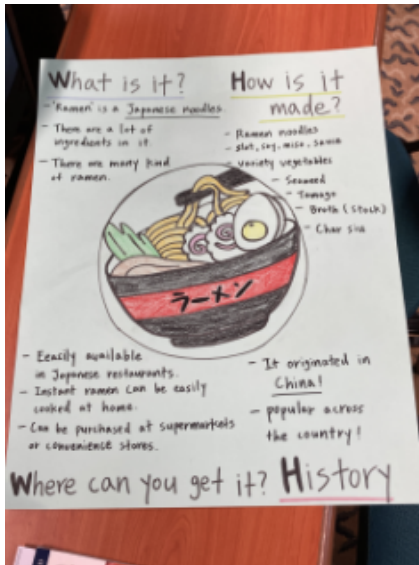 What is it?
- "Ramen" is a Japanese noodles
- There are a lot of
ingredients in it.
- There are many kind
of ramen.
How is it
made?
- Ramen noodles
- slat, soy, miso, sauce
- variety vegetables
- Seaweed
- Tamago
- Broth (stock)
- Char siu
ラーメン
- Eeasily available
in Japanese restaurants.
- Instant ramen can be easily
cooked at home.
- Can be purchased at supermarkets
or convenience stores.
Where can you get it?
- It originated in
China!
- popular across
the country!
History